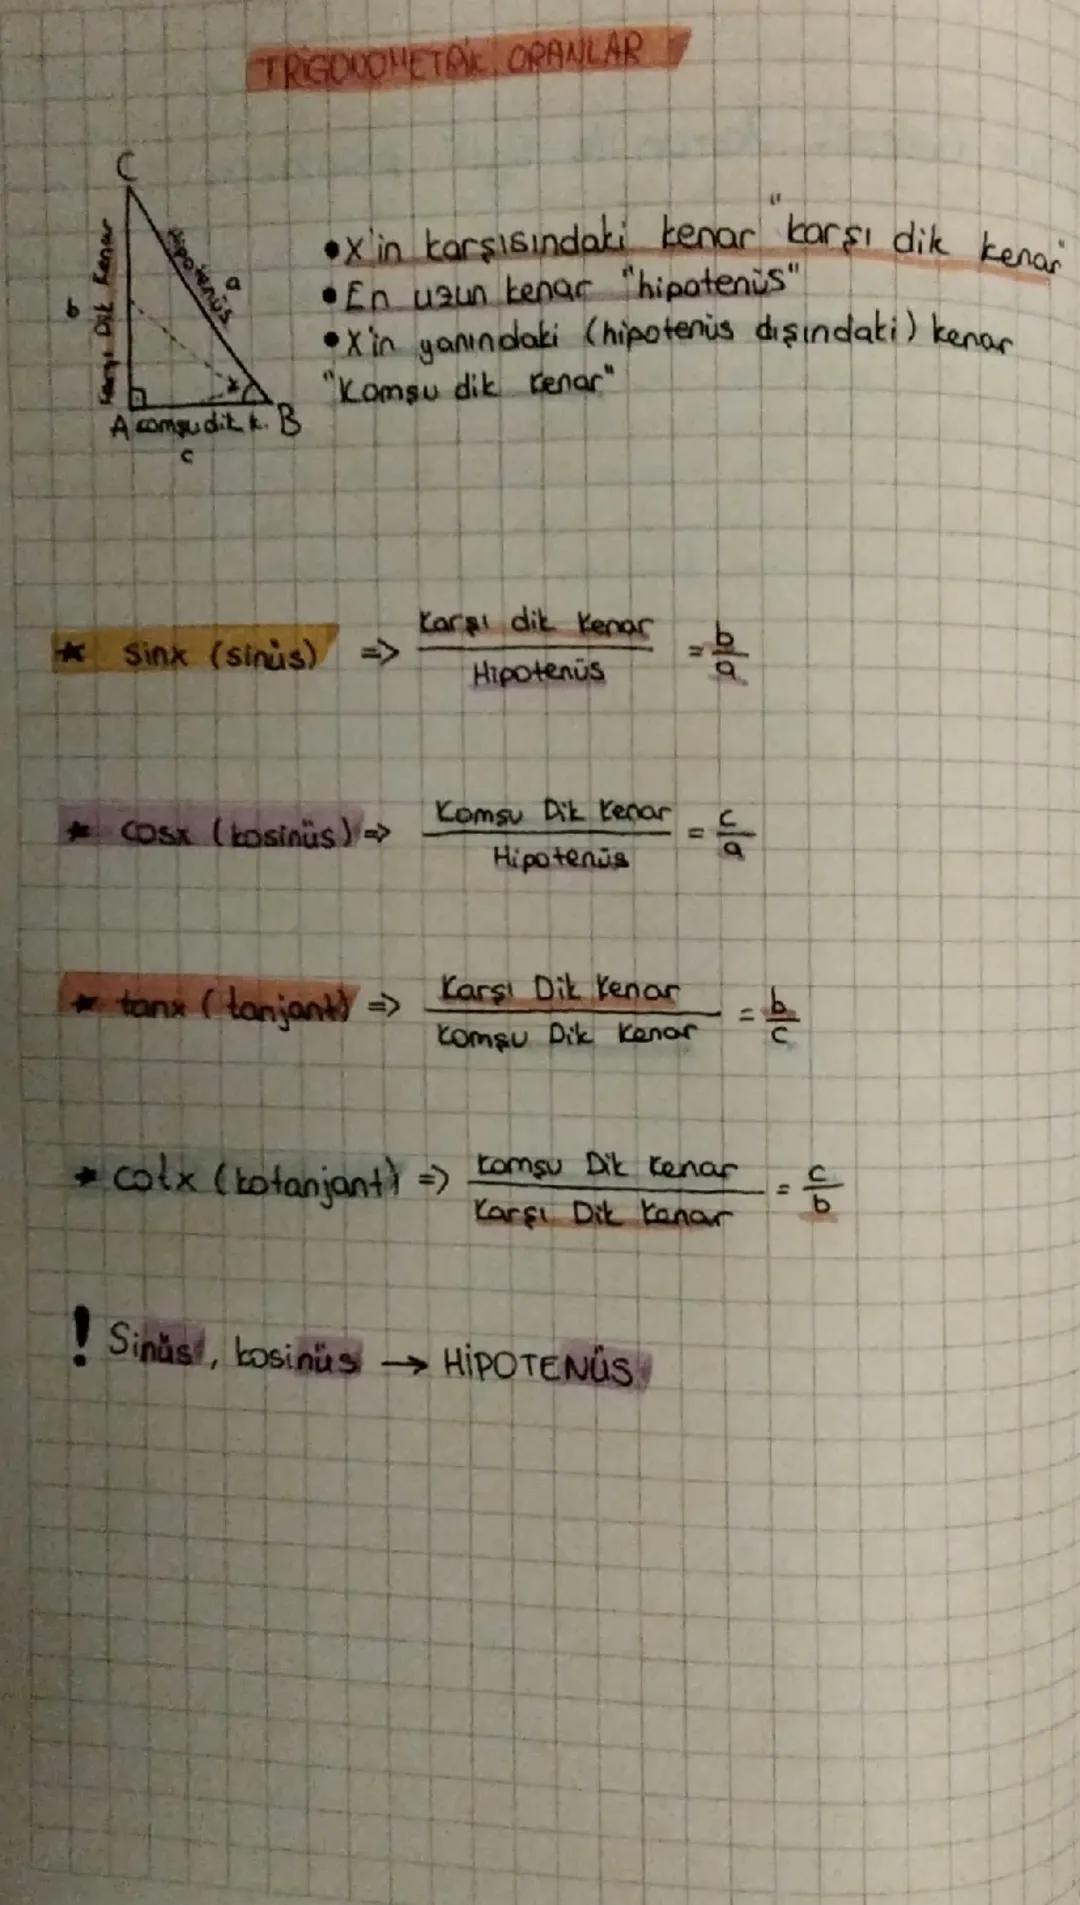 TRİGONOMETRİK ORANLAR
C
b
Karşı Dik Kenar
Hipotenüs
a
x
A komşu dik k. B
c
•x'in karşısındaki kenar "karşı dik kenar"
•En uzun kenar "hipotenüs"
•X'in yanındaki (hipotenüs dışındaki) kenar
"Komşu dik kenar"
* Sinx (sinüs) => Karşı dik Kenar / Hipotenüs = b/a
* cosx (kosinüs) => Komşu Dik Kenar / Hipotenüs = c/a
* tanx (tanjant) => Karşı Dik Kenar / Komşu Dik Kenar = b/c
* cotx (kotanjant) => Komşu Dik Kenar / Karşı Dik Kenar = c/b
! Sinüs, kosinüs → HİPOTENÜS